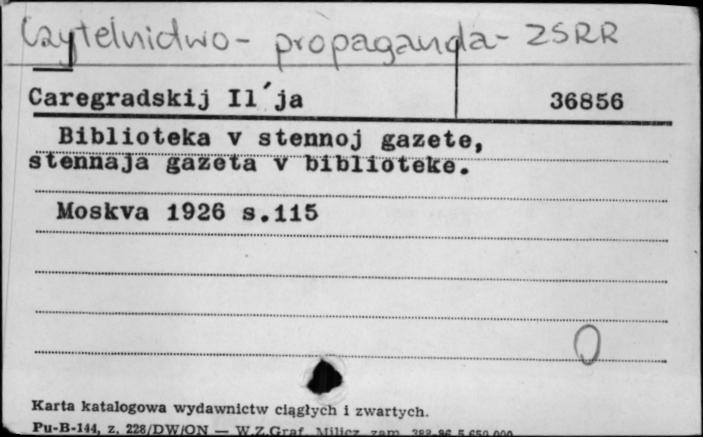 Czytelnictwo - propaganda - ZSRR
Caregradskij Il'ja 36856
Biblioteka v stennoj gazete,
stennaja gazeta v biblioteke.
Moskva 1926 s.115
Karta katalogowa wydawnictw ciągłych i zwartych.
Pu-B-144, z. 228/DW/ON — W.Z.Graf. Milicz zam.